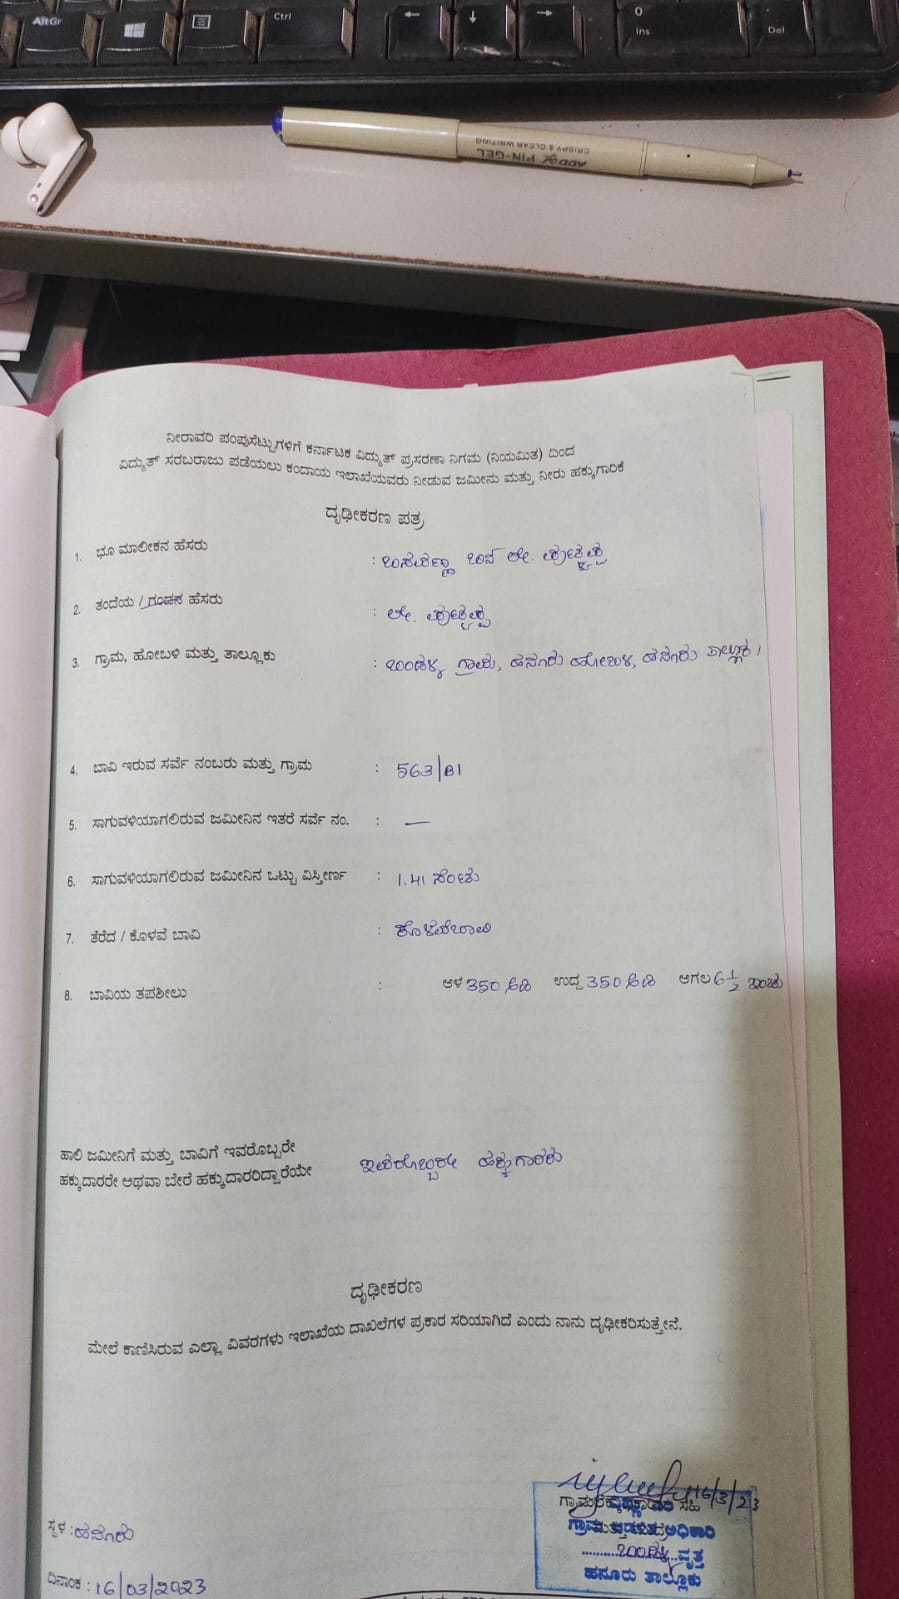 AltGr
Ctrl
0
Ins
Del
ADD PIN-GEL
CRISPY & CLEAR WRITING
ನೀರಾವರಿ ಪಂಪುಸೆಟ್ಟುಗಳಿಗೆ ಕರ್ನಾಟಕ ವಿದ್ಯುತ್ ಪ್ರಸರಣಾ ನಿಗಮ (ನಿಯಮಿತ) ದಿಂದ
ವಿದ್ಯುತ್ ಸರಬರಾಜು ಪಡೆಯಲು ಕಂದಾಯ ಇಲಾಖೆಯವರು ನೀಡುವ ಜಮೀನು ಮತ್ತು ನೀರು ಹಕ್ಕುಗಾರಿಕೆ
ದೃಢೀಕರಣ ಪತ್ರ
1. ಭೂ ಮಾಲೀಕನ ಹೆಸರು : ಬಸವಣ್ಣಾ ಬಿನ್ ಲೇ.
2. ತಂದೆಯ / ಗಂಡನ ಹೆಸರು : ಲೇ.
3. ಗ್ರಾಮ, ಹೋಬಳಿ ಮತ್ತು ತಾಲ್ಲೂಕು : ಬಂಡಳ್ಳಿ ಗ್ರಾಮ, ಹನೂರು ಹೋಬಳಿ, ಹನೂರು ತಾಲ್ಲೂಕು
4. ಬಾವಿ ಇರುವ ಸರ್ವೆ ನಂಬರು ಮತ್ತು ಗ್ರಾಮ : 563/B1
5. ಸಾಗುವಳಿಯಾಗಲಿರುವ ಜಮೀನಿನ ಇತರೆ ಸರ್ವೆ ನಂ. : —
6. ಸಾಗುವಳಿಯಾಗಲಿರುವ ಜಮೀನಿನ ಒಟ್ಟು ವಿಸ್ತೀರ್ಣ : 1.41 ಸೆಂಟು
7. ತೆರೆದ / ಕೊಳವೆ ಬಾವಿ : ಕೊಳವೆಬಾವಿ
8. ಬಾವಿಯ ತಪಶೀಲು : ಆಳ 350 ಅಡಿ ಉದ್ದ 350 ಅಡಿ ಅಗಲ 6 1/2 ಇಂಚು
ಹಾಲಿ ಜಮೀನಿಗೆ ಮತ್ತು ಬಾವಿಗೆ ಇವರೊಬ್ಬರೇ
ಹಕ್ಕುದಾರರೇ ಅಥವಾ ಬೇರೆ ಹಕ್ಕುದಾರರಿದ್ದಾರೆಯೇ ಇವರೊಬ್ಬರೇ ಹಕ್ಕುಗಾರರು
ದೃಢೀಕರಣ
ಮೇಲೆ ಕಾಣಿಸಿರುವ ಎಲ್ಲಾ ವಿವರಗಳು ಇಲಾಖೆಯ ದಾಖಲೆಗಳ ಪ್ರಕಾರ ಸರಿಯಾಗಿದೆ ಎಂದು ನಾನು ದೃಢೀಕರಿಸುತ್ತೇನೆ.
16/3/23
ಸಹಿ
ಗ್ರಾಮ ಆಡಳಿತ ಅಧಿಕಾರಿ
ಬಂಡಳ್ಳಿ ವೃತ್ತ
ಹನೂರು ತಾಲ್ಲೂಕು
ಸ್ಥಳ : ಹನೂರು
ದಿನಾಂಕ : 16/03/2023